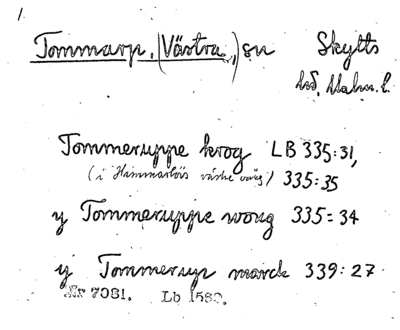 1.
Tommarp, (Västra,) sn Skytts
hd, Malm. l.
Tommeruppe krog LB 335:31,
(i Hammarlöfs västre vång) 335:35
y Tommeruppe wong 335:34
ÿ Tommerup marck 339:27
Ær 7081. Lb 1582.